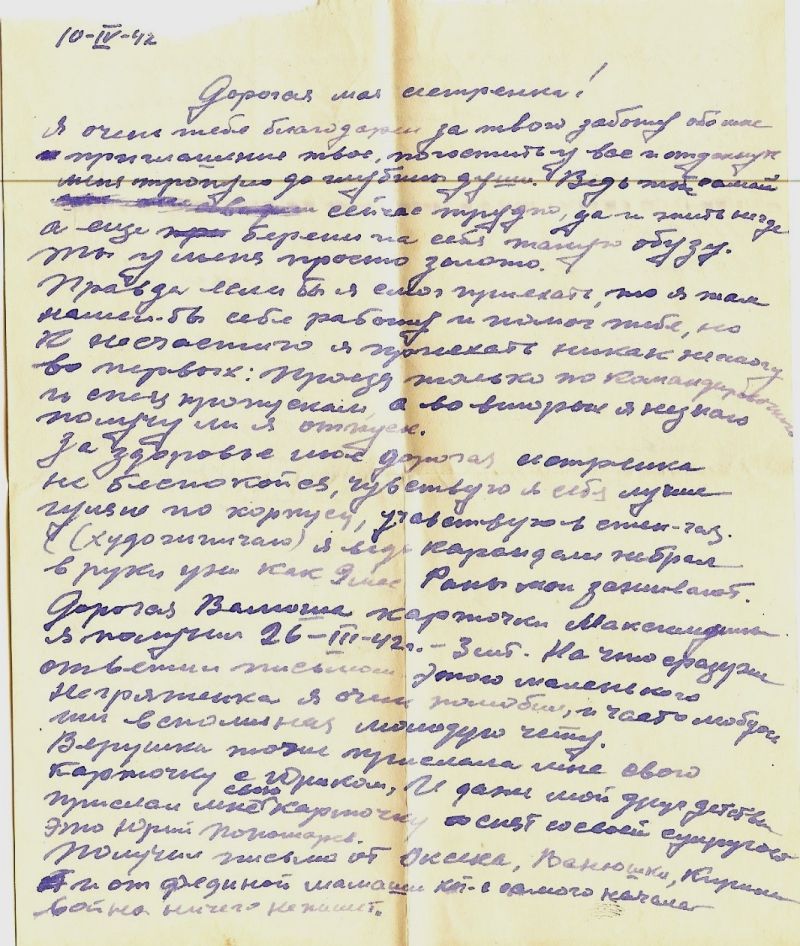 10-IV-42
Дорогая моя сестренка!
Я очень тебе благодарен за твою заботу обо мне
приглашение твое, погостить у вас и отдохнуть
меня тронуло до глубины души. Ведь тебе самой
сейчас трудно, да и жить негде
а еще берешь на себя такую обузу.
Ты у меня просто золото.
Правда если бы я смог приехать, то я там
нашел-бы себе работу и помог тебе, но
к несчастию я приехать никак не могу
во первых: проезд только по командировочным
и спец пропускам, а во вторых я не знаю
получу ли я отпуск.
За здоровье мое дорогая сестренка
не беспокойся, чувствую я себя лучше
гуляю по корпусу, участвую в стен-газ.
(художничаю) я ведь карандаш не брал
в руки уже как 9 мес. Раны мои заживают.
Дорогая Валюша карточки
я получил 26-III-42г. - 3 шт. На что сразу же
ответил письмом. Этого маленького
негритенка я очень полюбил, и часто любуюсь
им вспоминая молодую чету.
Верушка тоже прислала мне свою
карточку с Юриком, И даже мой друг детства
прислал мне свою карточку снят со своей супругой
это Юрий Пономарь.
Получил письмо от Оксека, Ванюшки,
и от Фединой мамаши с самого начала
войны ничего не пишет.